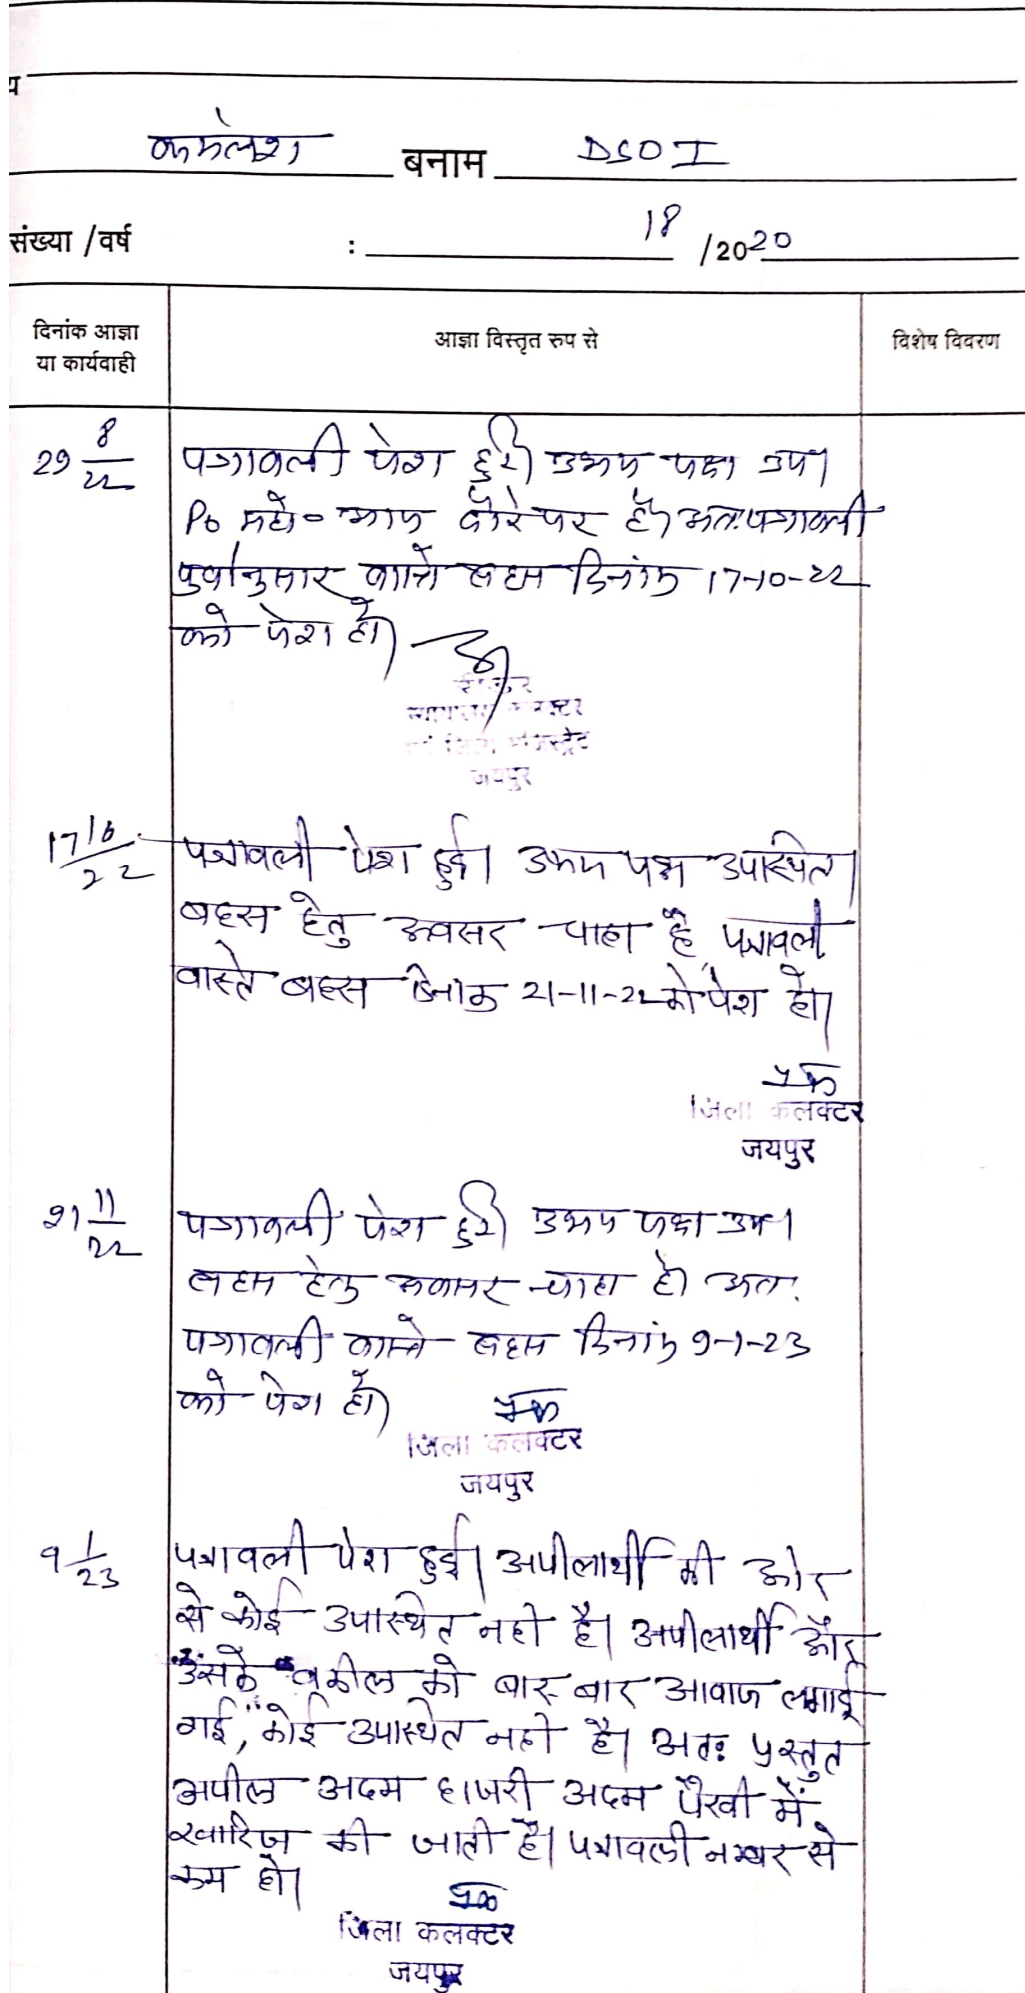 य
कमलेश बनाम DSO I
संख्या /वर्ष : 18 /2020
दिनांक आज्ञा
या कार्यवाही
आज्ञा विस्तृत रुप से
विशेष विवरण
29 8/22
पत्रावली पेश हुई। उभय पक्ष उप।
Po महो० आज दौरे पर है। अतः पत्रावली
पुर्वानुसार वास्ते बहस दिनांक 17-10-22
को पेश हो।
जयपुर
17 10/22
पत्रावली पेश हुई। उभय पक्ष उपस्थित।
बहस हेतु अवसर चाहा है, पत्रावली
वास्ते बहस दिनांक 21-11-22 को पेश हो।
जिला कलक्टर
जयपुर
21 11/22
पत्रावली पेश हुई। उभय पक्ष उप।
बहस हेतु अवसर चाहा है। अतः
पत्रावली वास्ते बहस दिनांक 9-1-23
को पेश हो।
जिला कलक्टर
जयपुर
9 1/23
पत्रावली पेश हुई। अपीलार्थी की ओर
से कोई उपस्थित नही है। अपीलार्थी और
उसके वकील को बार-बार आवाज लगाई
गई, कोई उपस्थित नही है। अतः प्रस्तुत
अपील अदम हाजरी अदम पैरवी में
खारिज की जाती है। पत्रावली नम्बर से
कम हो।
जिला कलक्टर
जयपुर